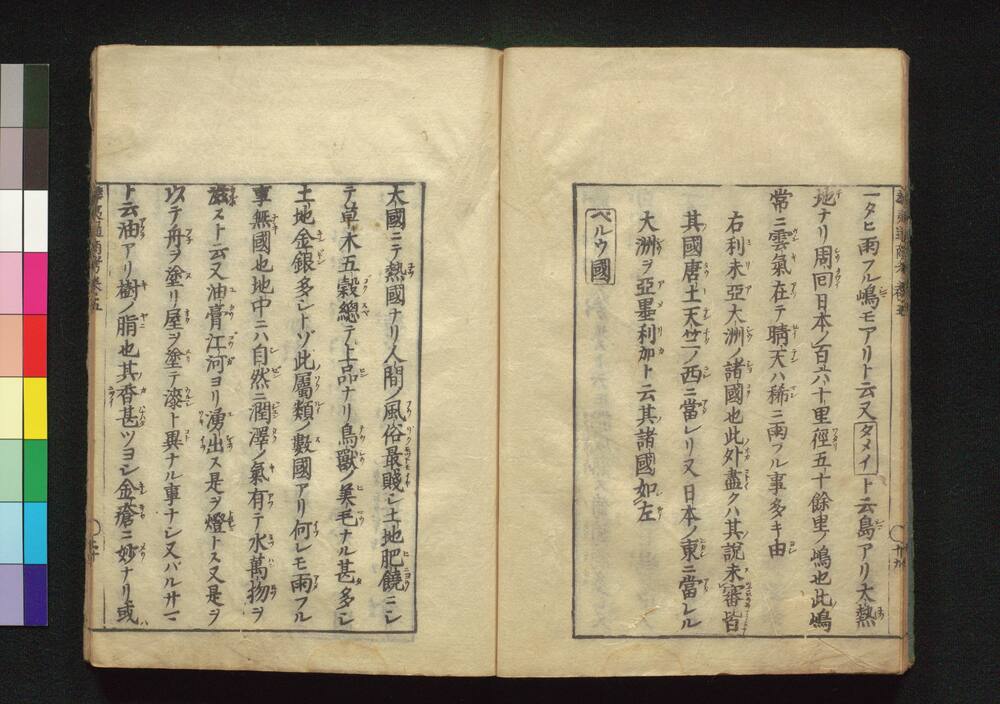 一タヒ雨フル嶋モアリト云又タメイト云島アリ大熱
地ナリ周回日本ノ百六十里徑五十餘里ノ嶋也此嶋
常ニ雲氣在テ晴天ハ稀ニ雨フル事多キ由
右利未亞大洲ノ諸國也此外盡クハ其説未審皆
其國唐土天竺ノ西ニ當レリ又日本ノ東ニ當レル
大洲ヲ亞墨利加ト云其諸國如左
ペルウ國
大國ニテ熱國ナリ人間ノ風俗最賤シ土地肥饒ニシ
テ草木五穀總テ上品ナリ鳥獸ノ美毛ナル甚多シ
土地金銀多シトゾ此屬類ノ數國アリ何レモ雨フル
事無國也地中ニハ自然ニ潤澤ノ氣有テ水萬物ヲ
滋スト云又油膏江河ヨリ湧出ス是ヲ燈トス又是ヲ
以テ舟ヲ塗リ屋ヲ塗テ漆ト異ナル事ナシ又バルサマ
ト云油アリ樹ノ脂也其香甚ツヨシ金瘡ニ妙ナリ或